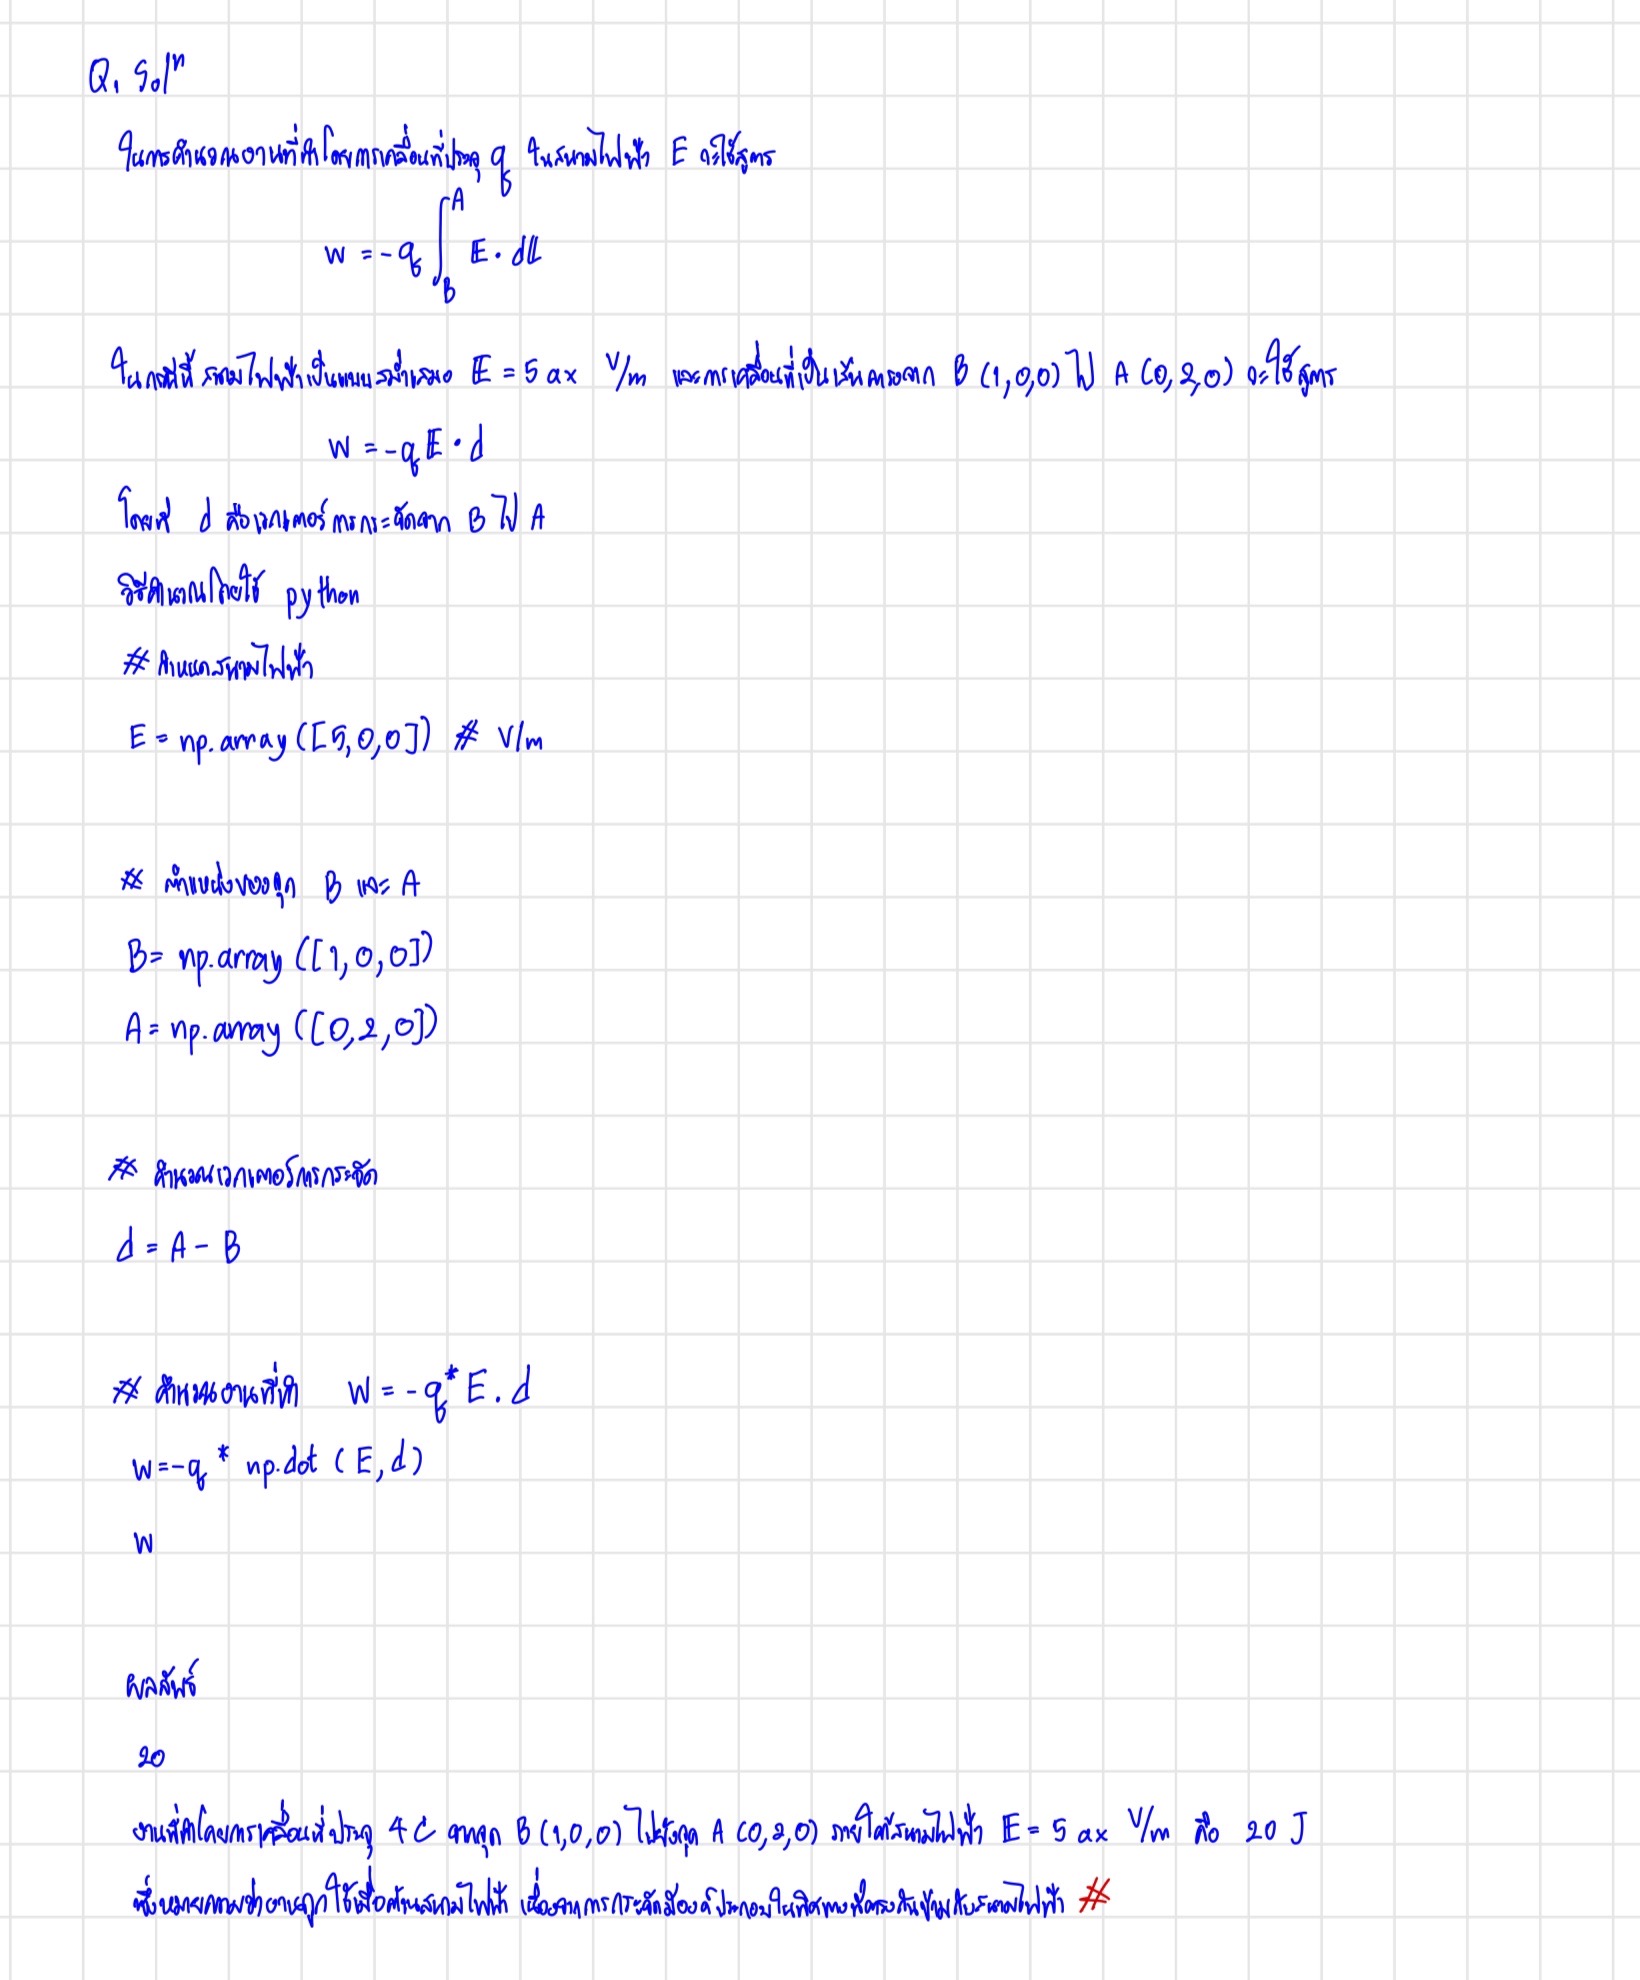 Q1 Solⁿ
ในการคำนวณงานที่ทำโดยการเคลื่อนที่ประจุ q ในสนามไฟฟ้า E จะใช้สูตร
W = -q ∫_B^A E · dL
ในกรณีนี้ สนามไฟฟ้าเป็นแบบสม่ำเสมอ E = 5 ax V/m และการเคลื่อนที่เป็นเส้นตรงจาก B (1,0,0) ไป A (0,2,0) จะใช้สูตร
W = -q E · d
โดยที่ d คือเวกเตอร์การกระจัดจาก B ไป A
วิธีคำนวณโดยใช้ python
# กำหนดสนามไฟฟ้า
E = np.array ([5,0,0]) # V/m
# ตำแหน่งของจุด B และ A
B = np.array ([1,0,0])
A = np.array ([0,2,0])
# คำนวณเวกเตอร์การกระจัด
d = A - B
# คำนวณงานที่ทำ W = -q * E . d
W = -q * np.dot (E, d)
W
ผลลัพธ์
20
งานที่ทำโดยการเคลื่อนที่ประจุ 4 C จากจุด B (1,0,0) ไปยังจุด A (0,2,0) ภายใต้สนามไฟฟ้า E = 5 ax V/m คือ 20 J
ซึ่งหมายความว่างานถูกใช้เพื่อต้านสนามไฟฟ้า เนื่องจากการกระจัดมีองค์ประกอบในทิศทางที่ตรงกันข้ามกับสนามไฟฟ้า #